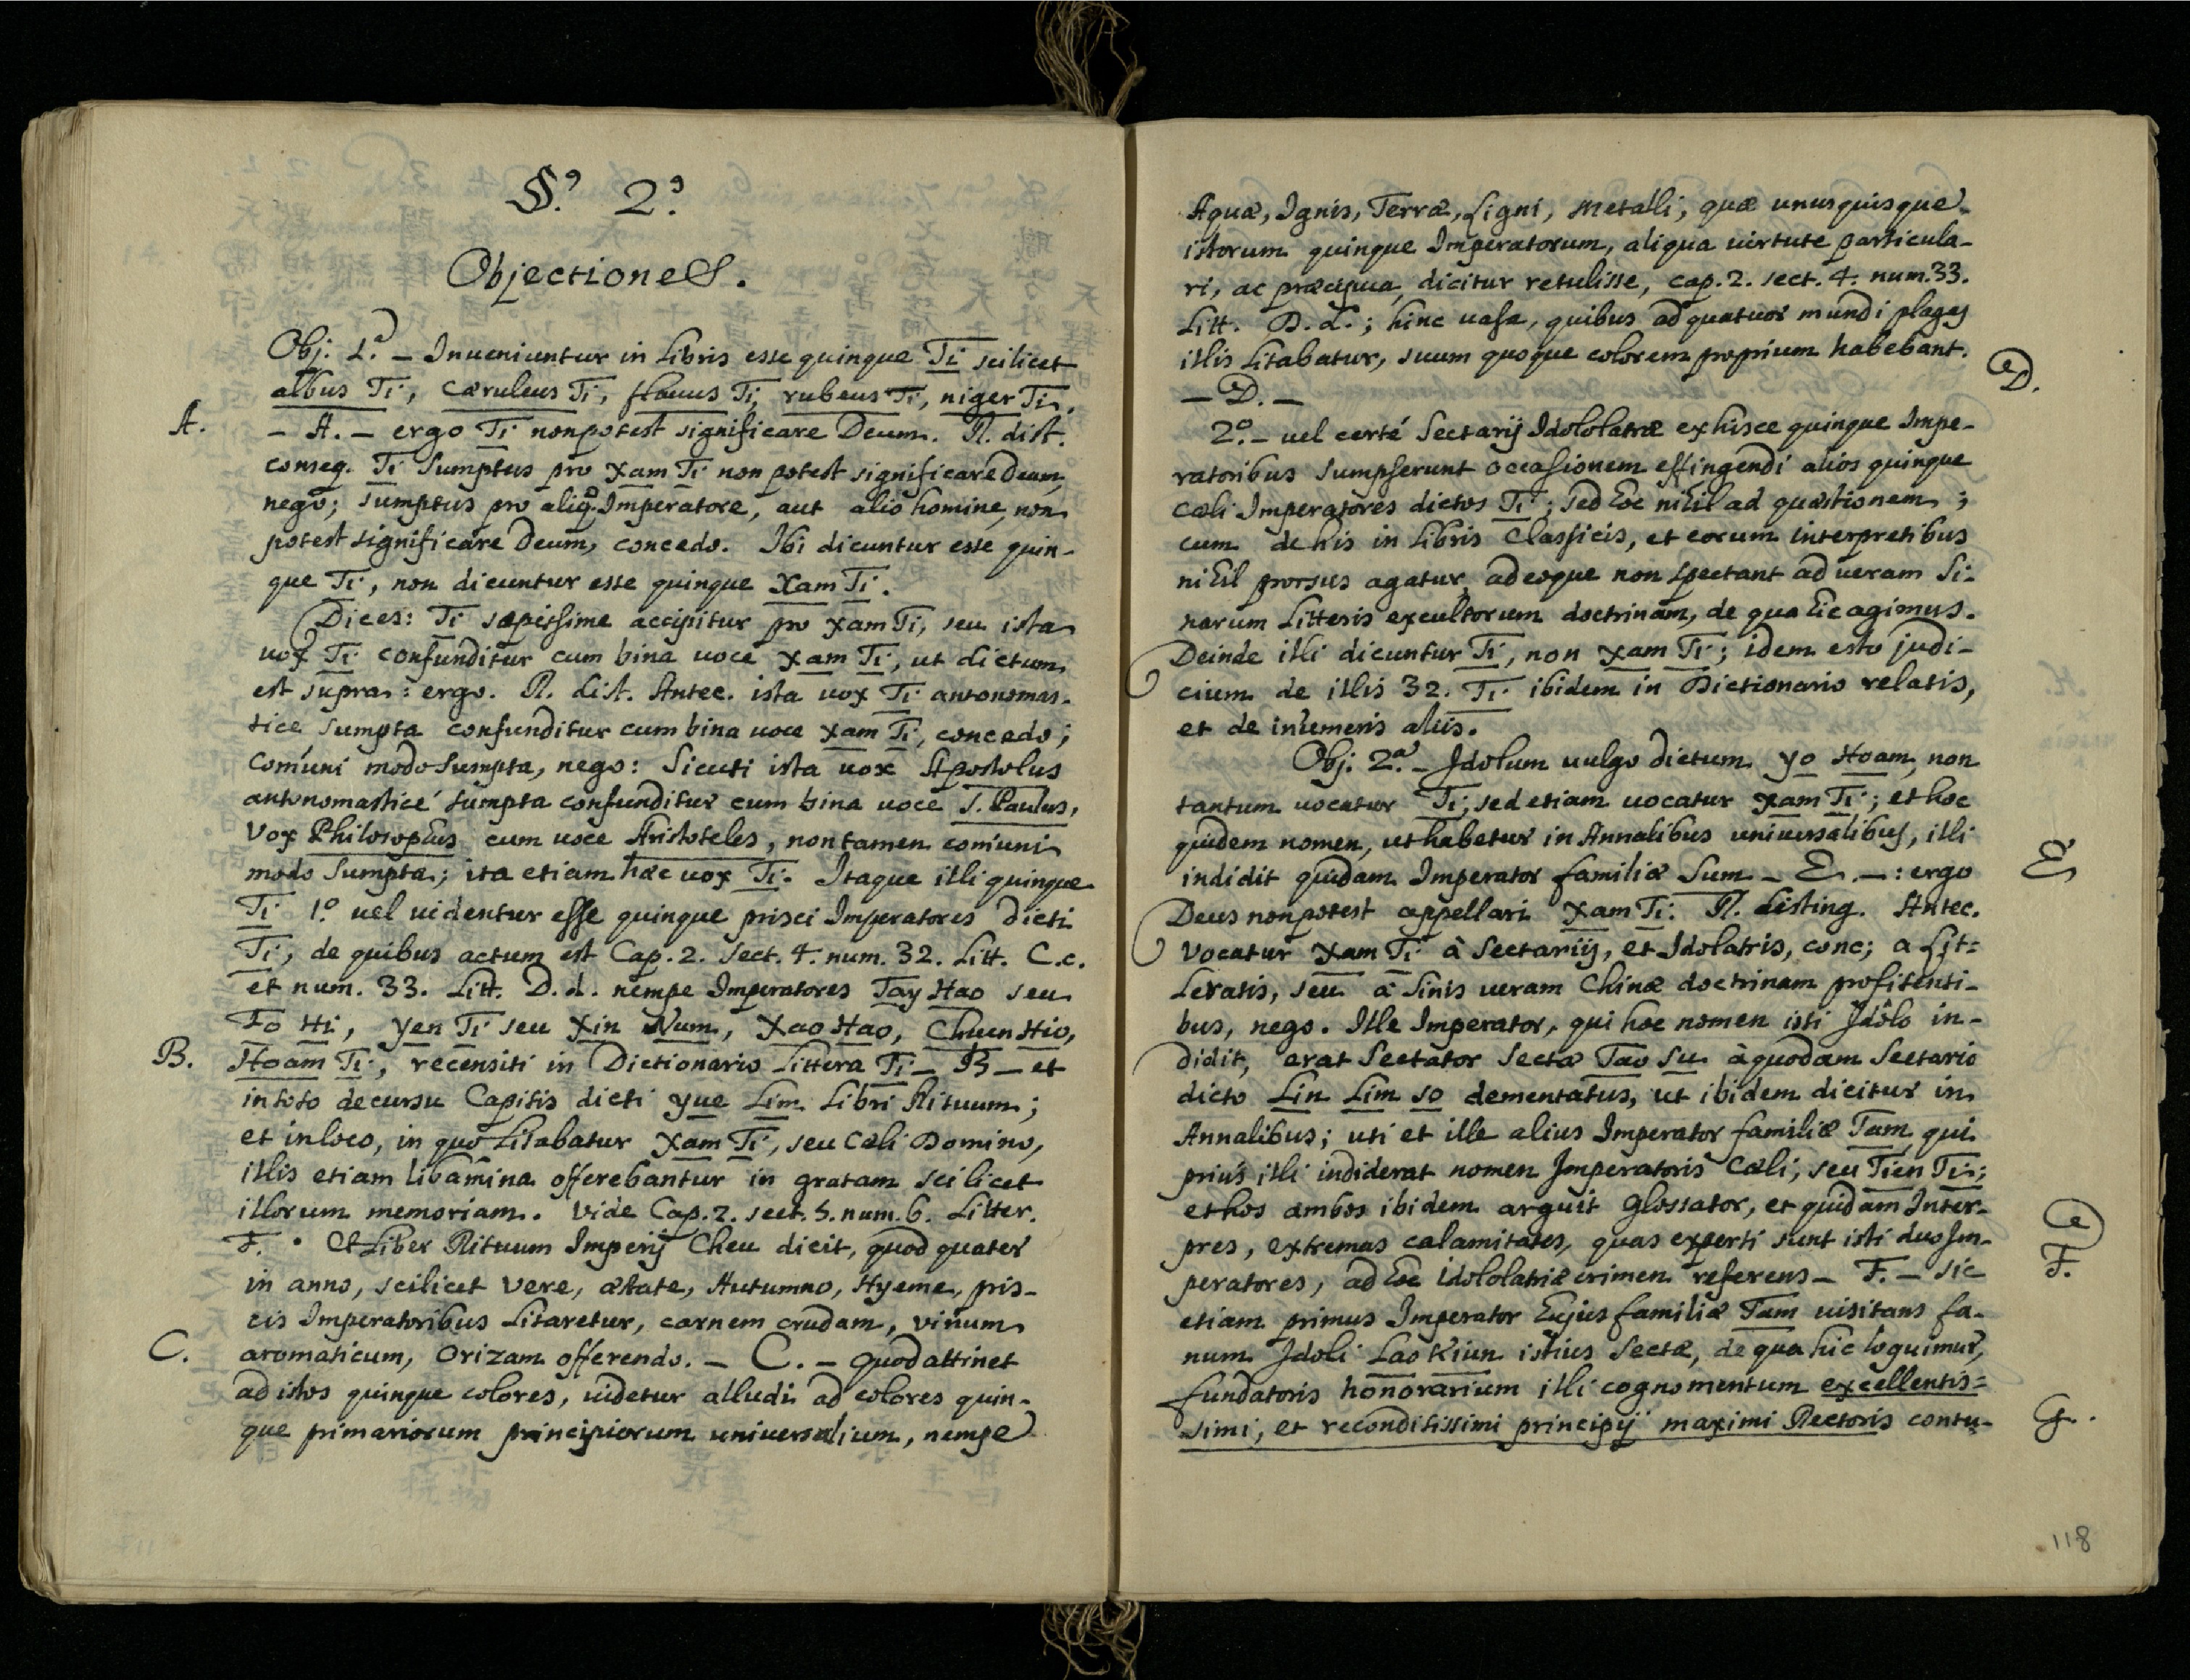 §.º 2.º
Objectiones.
Obj. 1.ª – Inueniuntur in Libris esse quinque Ti scilicet
albus Ti, cæruleus Ti, flauus Ti, rubeus Ti, niger Ti,
A. – A. – ergo Ti non potest significare Deum. R. dist.
conseq. Ti sumptus pro Xam Ti non potest significare Deum,
nego; sumptus pro aliq.º Imperatore, aut alio homine, non
potest significare Deum, concedo. Ibi dicuntur esse quin-
que Ti, non dicuntur esse quinque Xam Ti.
Dices: Ti sæpissime accipitur pro Xam Ti, seu ista
uox Ti confunditur cum bina uoce Xam Ti, ut dictum
est supra: ergo. R. dist. Antec. ista uox Ti antonomas-
tice sumpta confunditur cum bina uoce Xam Ti, concedo;
comuni modo sumpta, nego: Sicuti ista uox Apostolus
antonomasticé sumpta confunditur cum bina uoce S. Paulus,
Vox Philosophus cum uoce Aristoteles, non tamen comuni
modo sumpta; ita etiam hæc uox Ti. Itaque illi quinque
Ti 1.º uel uidentur esse quinque prisci Imperatores dicti
Ti, de quibus actum est Cap. 2. sect. 4. num. 32. Litt. C.c.
et num. 33. Litt. D.d. nempe Imperatores Tay Hao seu
Fo Hi, Yen Ti seu Xin Num, Xao Hao, Chuen Hio,
B. Hoam Ti, recensiti in Dictionario Littera Ti – B – et
in toto decursu Capitis dicti yue Lim Libri Rituum;
et in loco, in quo Litabatur Xam Ti, seu Cæli Domino,
illis etiam libamina offerebantur in gratam scilicet
illorum memoriam. Vide Cap. 2. sect. 5. num. 6. Litter.
F. · Et Liber Rituum Imperij Cheu dicit, quod quater
in anno, scilicet Vere, æstate, Autumno, Hyeme, pris-
cis Imperatoribus Litaretur, carnem crudam, vinum
C. aromaticum, Orizam offerendo. – C. – Quod attinet
ad istos quinque colores, uidetur alludi ad colores quin-
que primariorum principiorum universalium, nempe
Aquæ, Ignis, Terræ, Ligni, Metalli, quæ unusquisque
istorum quinque Imperatorum, aliqua uirtute particula-
ri, ac præcipua, dicitur retulisse, cap. 2. sect. 4. num. 33.
Litt. D.d.; hinc uasa, quibus ad quatuor mundi plagas
illis Litabatur, suum quoque colorem proprium habebant.
– D. – D.
2.º – uel certé Sectarij Idololatræ ex hisce quinque Impe-
ratoribus sumpserunt occasionem effingendi alios quinque
Cæli Imperatores dictos Ti; sed hoc nihil ad quæstionem;
cum de his in Libris Classicis, et eorum interpretibus
nihil prorsus agatur, adeoque non spectant ad ueram Si-
narum Litteris excultorum doctrinam, de qua hic agimus.
Deinde illi dicuntur Ti, non Xam Ti; idem esto judi-
cium de illis 32. Ti ibidem in Dictionario relatis,
et de innumeris aliis.
Obj. 2.ª – Idolum uulgo dictum yo Hoam, non
tantum uocatur Ti; sed etiam uocatur Xam Ti; et hoc
quidem nomen, ut habetur in Annalibus uniuersalibus, illi
indidit quidam Imperator familiæ Sum – E. – : ergo E
Deus non potest appellari Xam Ti. R. disting. Antec.
Vocatur Xam Ti à Sectariis, et Idolatris, conc; a Lit=
teratis, seu à Sinis ueram Chinæ doctrinam profitenti-
bus, nego. Ille Imperator, qui hoc nomen isti Idolo in-
didit, erat Sectator Sectæ Tao Su à quodam Sectario
dicto Lin Lim so dementatus, ut ibidem dicitur in
Annalibus; uti et ille alius Imperator familiæ Tam, qui
prius illi indiderat nomen Imperatoris Cæli, seu Tien Ti;
et hos ambos ibidem arguit Glossator, et quidam Inter-
pres, extremas calamitates, quas experti sunt isti duo Im-
peratores, ad hoc idololatriæ crimen referens – F. – sic F.
etiam primus Imperator hujus familiæ Tam uisitans fa-
num Idoli Lao Kiun istius Sectæ, de qua hic loquimur,
fundatoris honorarium illi cognomentum excellentis=
simi, et reconditissimi principij maximi Rectoris contu- G.
118